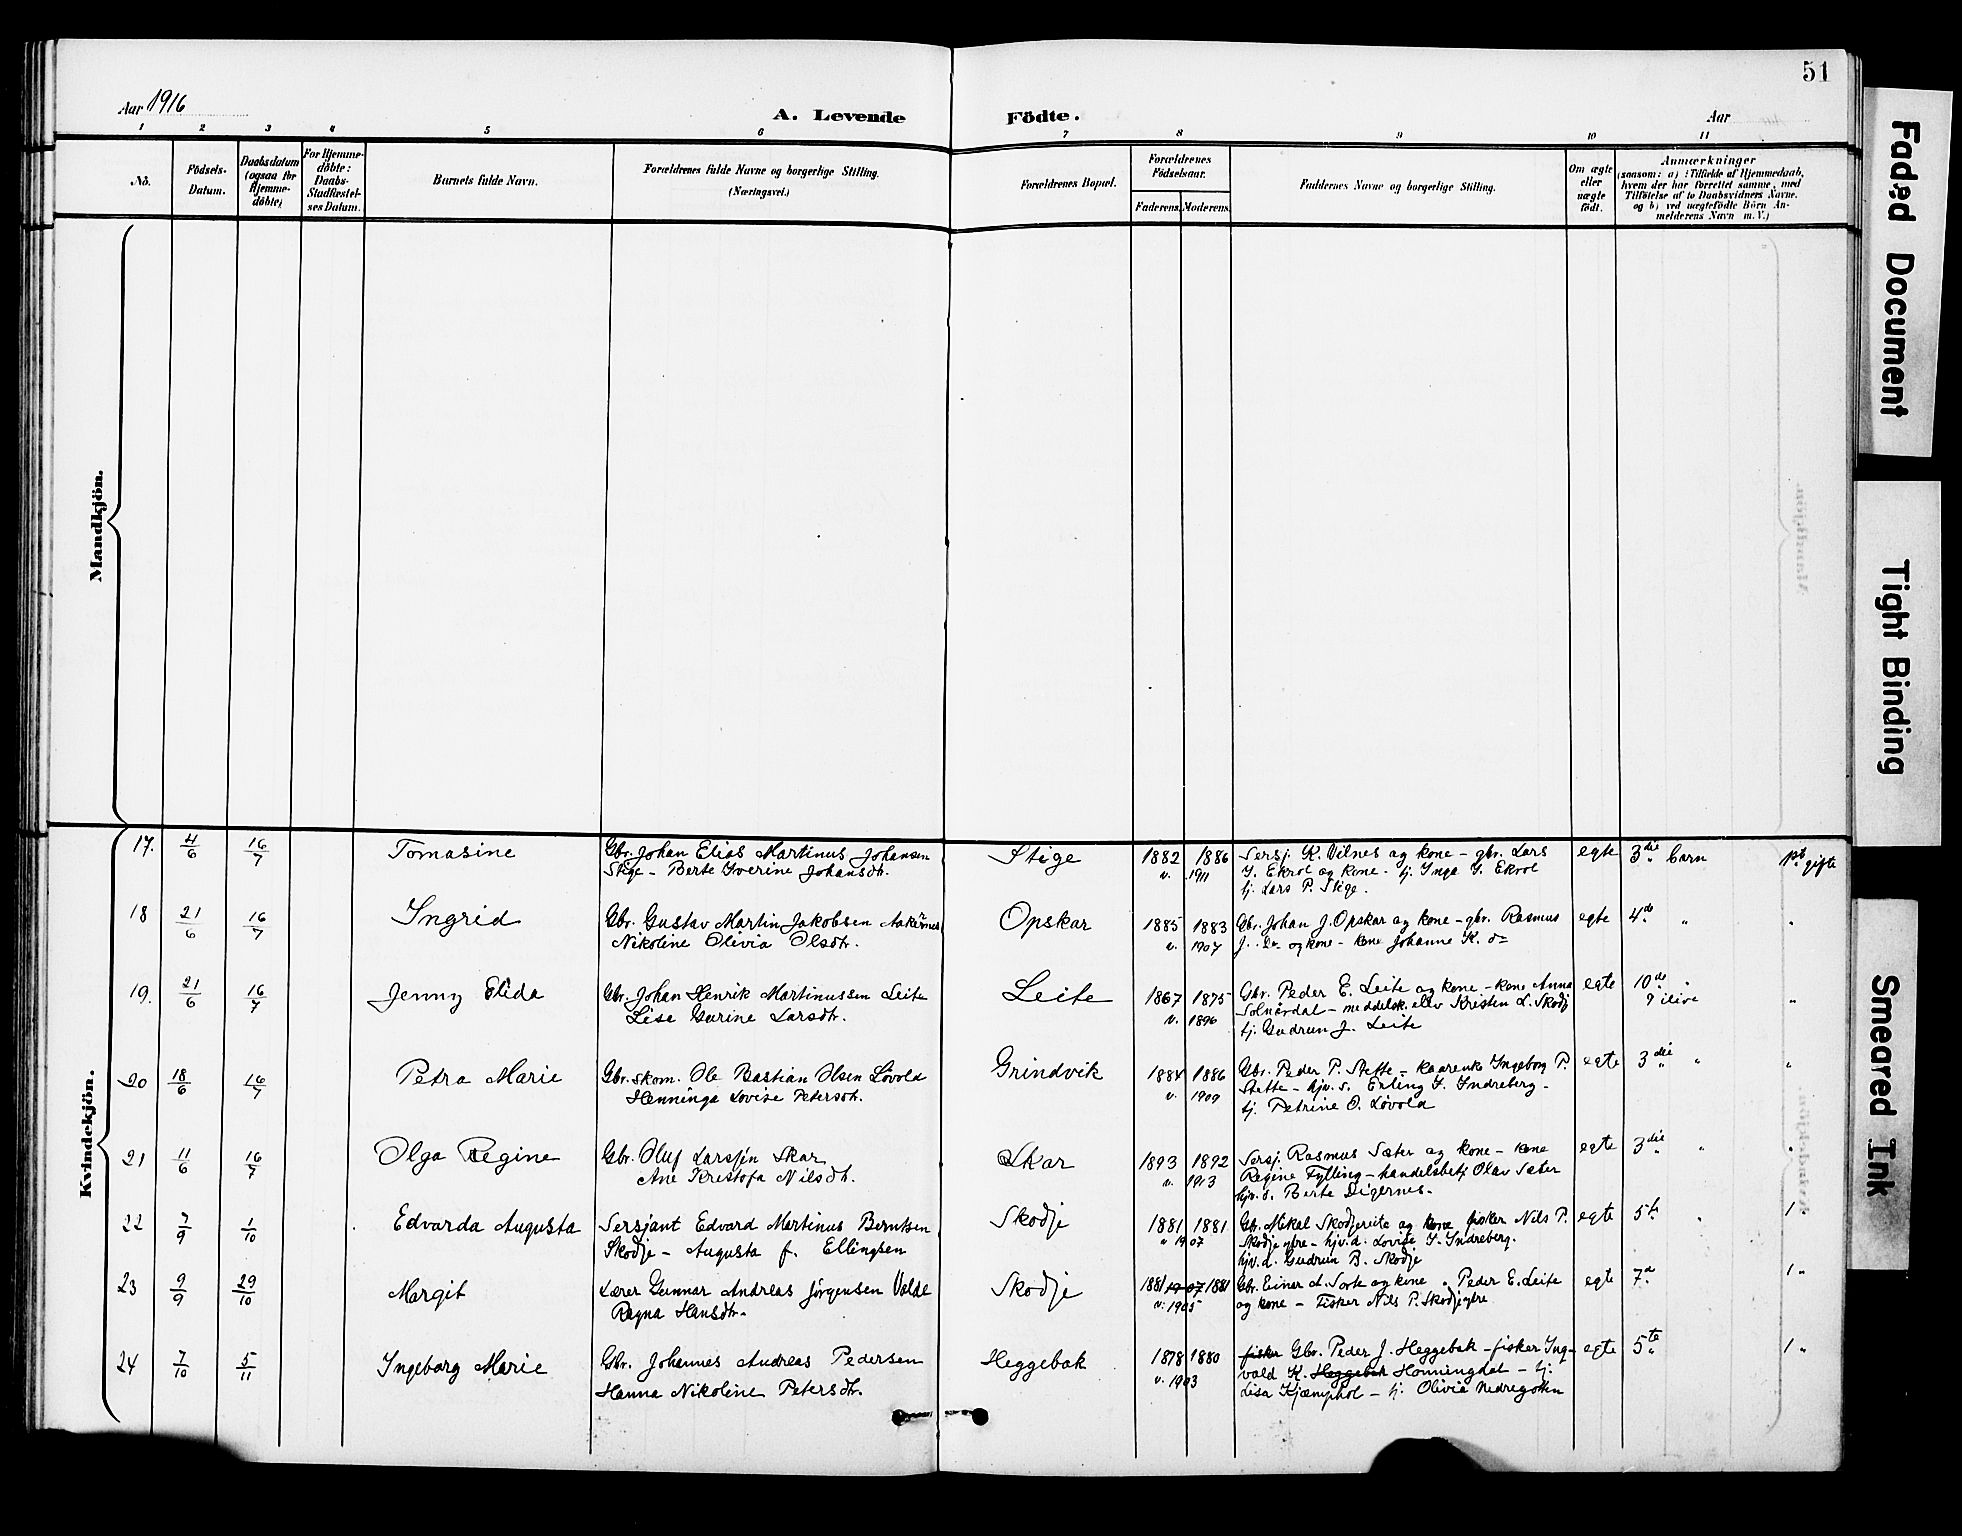 51
Aar 1916
A. Levende
Födte.
Aar
1 2 3 4 5 6 7 8 9 10 11
No.
Födsels-Datum.
Daabsdatum (ogsaa for Hjemme-döbte)
For Hjemme-döbte: Daabs-Stadfæstel-ses Datum.
Barnets fulde Navn.
Forældrenes fulde Navne og borgerlige Stilling. (Næringsvei.)
Forældrenes Bopæl.
Forældrenes Födselsaar.
Faderens. Moderens.
Faddernes Navne og borgerlige Stilling.
Om ægte eller uægte födt.
Anmærkninger
(saasom: a) i Tilfælde af Hjemmedaab,
hvem der har forrettet samme, med
Tilföielse af to Daabsvidners Navne.
og b) ved uægtefödte Börn An-
melderens Navn m. V.)
Mandkjön.
Kvindekjön.
17. 4/6 16/7 Tomasine Gbr. Johan Elias Martinus Johansen Stige 1882 1886 Sersj. K. Vilnes og kone - gbr. Lars egte 3die barn pt gifte
Stige - Berte Iverine Johansdtr. v. 1911 I. Ekrol og kone - tj. Inga I. Ekrol
tj. Lars P. Stige.
18 21/6 16/7 Ingrid Gbr. Gustav Martin Jakobsen Aakernes Opskar 1885 1883 Gbr. Johan J. Opskar og kone - gbr. Rasmus egte 4de " "
Nikoline Olivia Olsdtr. v. 1907 J. Do og kone - kone Johanne K. do
19. 21/6 16/7 Jenny Elida Gbr. Johan Henrik Martinussen Leite Leite 1867 1875 Gbr. Peder E. Leite og kone - kone Anna egte 10de " "
Lise Gurine Larsdtr. v. 1896 Solnørdal - meddelsk. elev Kristen L. Skodj 7 ilive
tj. Gudrun J. Leite
20 18/6 16/7 Petra Marie Gbr. skom. Ole Bastian Olsen Løvold Grindvik 1884 1886 Gbr. Peder P. Stette - kaarenke Ingeborg P. egte 3die " "
Henninga Lovise Petersdtr. v. 1909 Stette - hjv. s. Erling I. Indreberg -
tj. Petrine O. Løvold
21 11/6 16/7 Olga Regine Gbr. Oluf Larssen Skar Skar 1893 1892 Sersj. Rasmus Sæter og kone - kone egte 3die " "
Ane Kristofa Nilsdtr. v. 1913 Regine Fylling - handelsbetj Olav Sæter
hjv. d. Berte Digernes.
22 7/9 1/10 Edvarda Augusta Sersjant Edvard Martinus Berntsen Skodje 1881 1881 Gbr. Mikal Skodjereite og kone fisker Nils P. egte 5te " 1 "
Skodje - Augusta f. Ellingsen v 1907 Skodje ytre - hjv. d. Lovise I. Indreberg.
hjv. d. Gudrun B. Skodje
23 9/9 29/10 Margit Lærer Gunnar Andreas Jørgensen Valde Skodje 1881 19 07 1881 Gbr. Einar A. Sorte og kone " Peder E. Leite egte 7de 1 "
Ragna Hansdtr. v. 1905 og kone - Fisker Nils P. Skodje ytre
24 7/10 5/11 Ingeborg Marie Gbr. Johannes Andreas Pedersen Heggebak 1878 1880 fisker Gbr. Peder J. Heggebak - fisker Ing- egte 5te 1 "
Hanna Nikoline Petersdtr. v. 1903 vald K. Heggebak Honningdal - tj.
Lisa Kjæmphol - tj. Olivia Nedregotten
Faded Document
Tight Binding
Smeared Ink